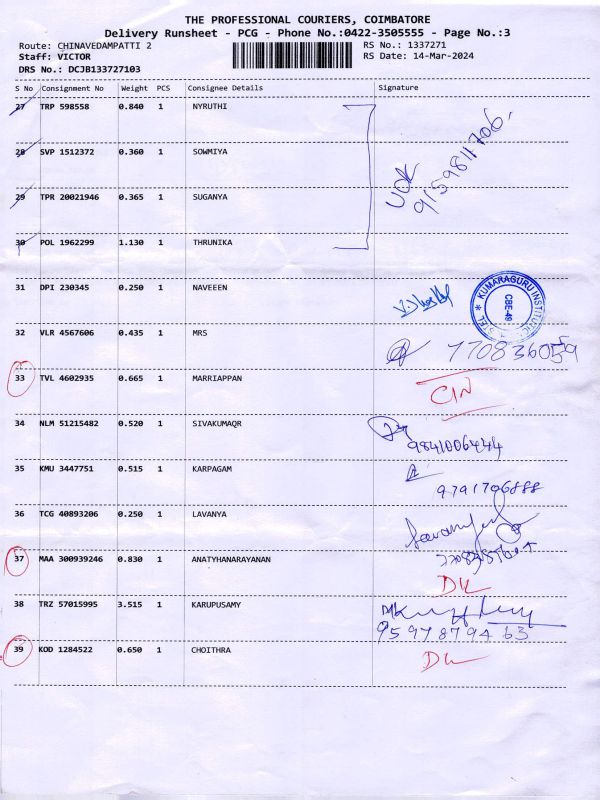 THE PROFESSIONAL COURIERS, COIMBATORE
Delivery Runsheet - PCG - Phone No.:0422-3505555 - Page No.:3
Route: CHINAVEDAMPATTI 2 RS No.: 1337271
Staff: VICTOR RS Date: 14-Mar-2024
DRS No.: DCJB133727103
S No Consignment No Weight PCS Consignee Details Signature
27 TRP 598558 0.840 1 NYRUTHI
28 SVP 1512372 0.360 1 SOWMIYA
29 TPR 20021946 0.365 1 SUGANYA
30 POL 1962299 1.130 1 THRUNIKA
9159811706
31 DPI 230345 0.250 1 NAVEEEN
KUMARAGURU INSTITUTI
CBE-49
32 VLR 4567606 0.435 1 MRS
33 TVL 4602935 0.665 1 MARRIAPPAN
34 NLM 51215482 0.520 1 SIVAKUMAQR
9841006444
35 KMU 3447751 0.515 1 KARPAGAM
9791706888
36 TCG 40893206 0.250 1 LAVANYA
37 MAA 300939246 0.830 1 ANATYHANARAYANAN
DL
38 TRZ 57015995 3.515 1 KARUPUSAMY
9597879463
39 KOD 1284522 0.650 1 CHOITHRA
DL